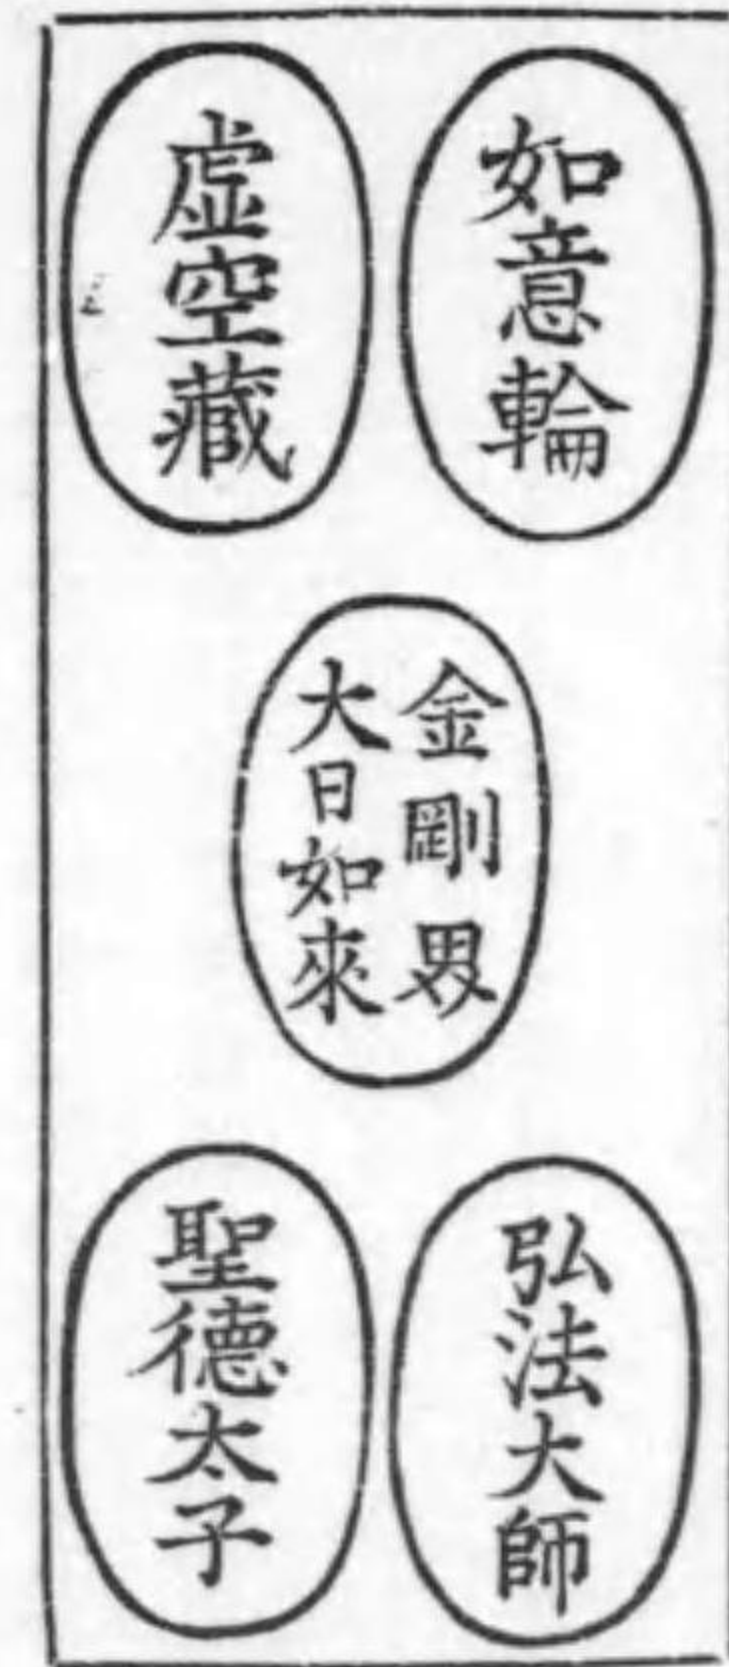 如意輪
虚空藏
金剛界
大日如來
弘法大師
聖德太子